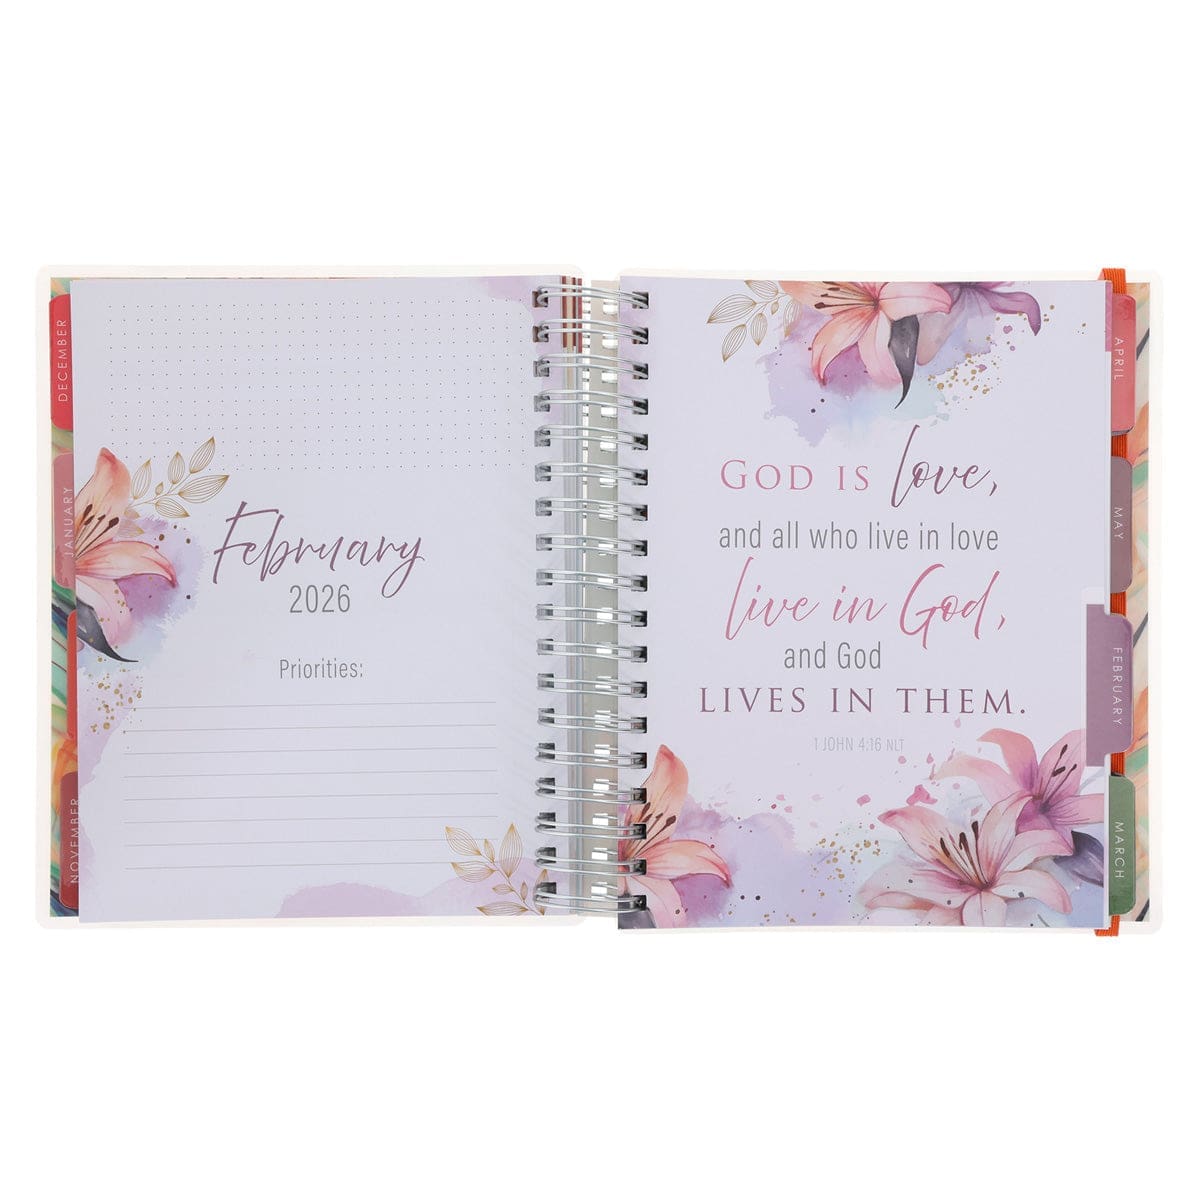 DECEMBER
JANUARY
NOVEMBER
February
2026
Priorities:
GOD IS love,
and all who live in love
live in God,
and God
LIVES IN THEM.
1 JOHN 4:16 NLT
APRIL
MAY
FEBRUARY
MARCH